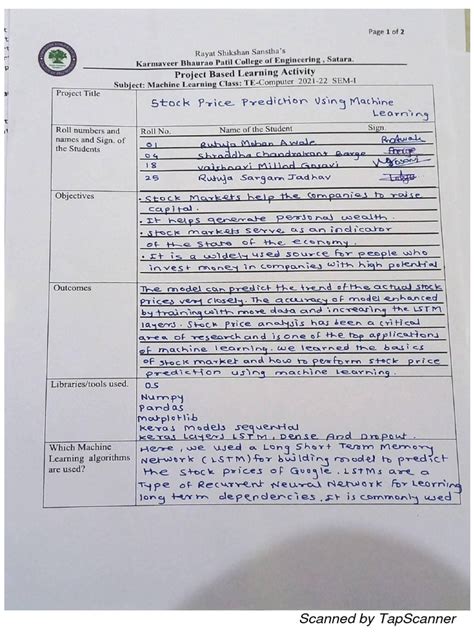 Page 1 of 2
Rayat Shikshan Sanstha's
Karmaveer Bhaurao Patil College of Engineering, Satara.
Project Based Learning Activity
Subject: Machine Learning Class: TE-Computer 2021-22 SEM-I
Project Title
Stock Price Prediction Using Machine
Learning
Roll numbers and
names and Sign. of
the Students
Roll No. Name of the Student Sign.
01 Rutuja Mohan Awale
04 Shraddha Chandrakant Barge
18 Vaishnavi Milind
25 Rutuja Sargam Jadhav
Objectives
• Stock Markets help the companies to raise
capital.
• It helps generate personal wealth.
• Stock markets serve as an indicator
of the state of the economy.
• It is a widely used source for people who
invest money in companies with high potential
Outcomes
The model can predict the trend of the actual stock
prices very closely. The accuracy of model enhanced
by training with more data and increasing the LSTM
layers. Stock Price analysis has been a critical
area of research and is one of the top applications
of machine learning. we learned the basics
of stock market and how to perform stock price
prediction using machine learning.
Libraries/tools used.
OS
Numpy
Pandas
Matplotlib
Keras Models Sequential
Keras Layers LSTM, Dense And Dropout.
Which Machine
Learning algorithms
are used?
Here, we used a Long Short Term Memory
Network (LSTM) for building model to predict
the stock prices of Google. LSTMs are a
Type of Recurrent Neural Network For Learning
long term dependencies. It is commonly used
Scanned by TapScanner